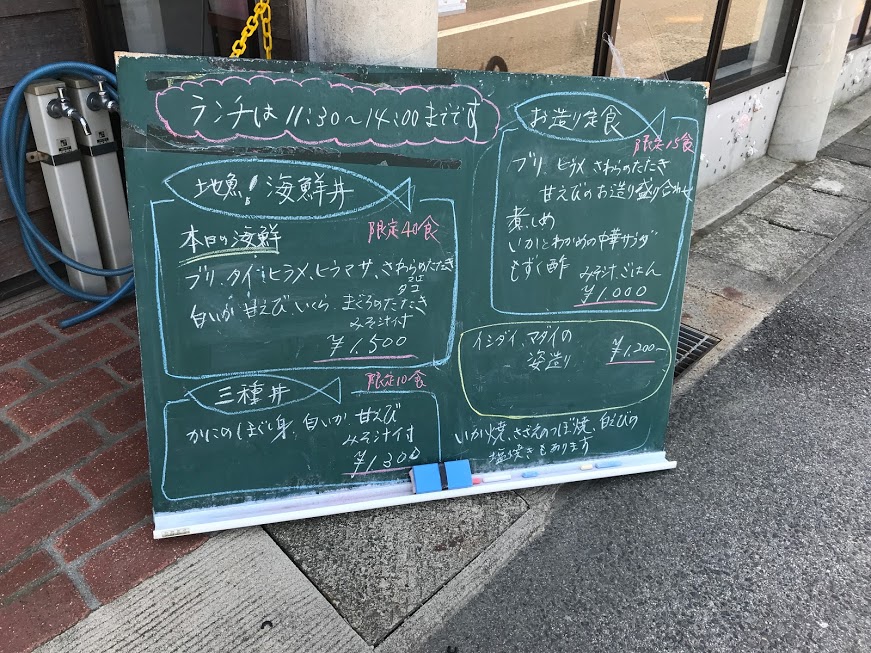 ランチは11:30～14:00までです
地魚!海鮮丼
本日の海鮮
限定40食
ブリ、タイ、ヒラメ、ヒラマサ、さわらのたたき
タコ
白いか 甘えび、いくら、まぐろのたたき
みそ汁付
¥1.500
三種丼
限定10食
かにのほぐし身、白いか 甘えび
みそ汁付
¥1.300
お造り定食
限定15食
ブリ、ヒラメ さわらのたたき
甘えびのお造り盛り合わせ
煮しめ
いかとわかめの中華サラダ
もずく酢
みそ汁、ごはん
¥1.000
イシダイ、マダイの
姿造り
¥1,200-
いか焼、さざえのつぼ焼、白えびの
塩焼きもあります